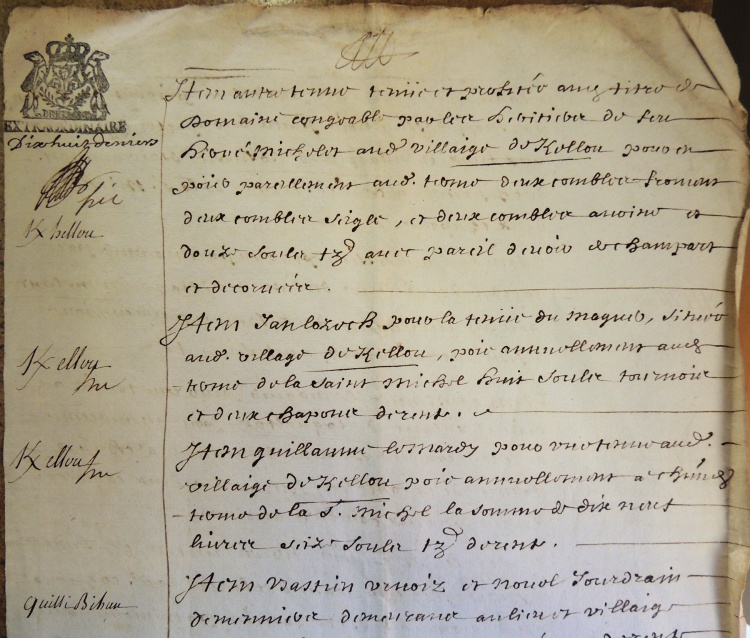 EXTRAORDINAIRE
Dix huit deniers
Item autre tenue tenüe et profitée audt titre de
Domaine congeable par les heritiers de feu
hervé Michelet aud. villaige de Kellou pour en
poier pareillement aud. terme deux combles froment
Khellou
deux combles seigle, et deux combles avoine et
douze soulz tz avec pareil devoir de champart
et decorvées.
Item Jan Lozoch pour la tenüe du maguer, située
aud. village de Kellou, poie annuellement audt
Kellou
terme de la Saint Michel huit soulz tournois
et deux chapons de rente.
Item guillaume le mardy pour une tenue aud.
Kellou
villaige de Kellou poie annuellement a chacun
terme de la St. Michel la somme de dix neuf
livres seize soulz tz de rente.
Item Bastien et nouel Jourdrain
quilli Bihan
demeurans au lieu et villaige
de rente